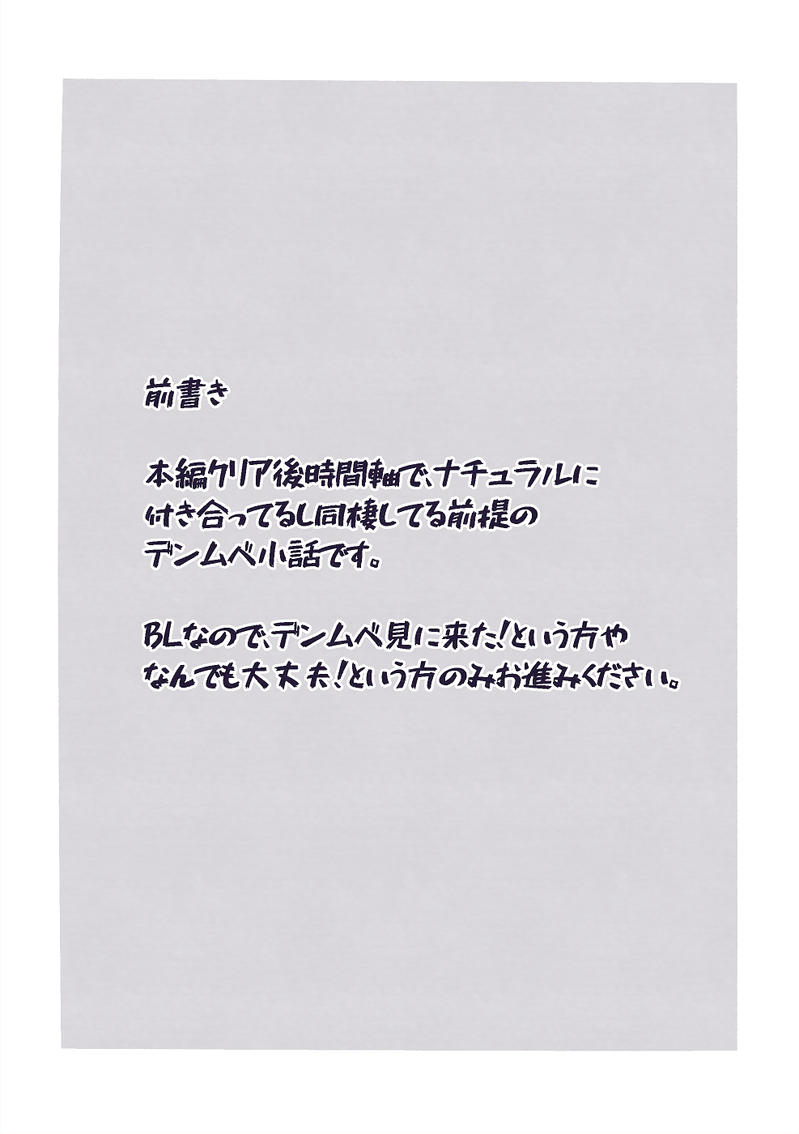 前書き
本編クリア後時間軸で、ナチュラルに
付き合ってるし同棲してる前提の
デンムベ小話です。
BLなので、デンムベ見に来た！という方や
なんでも大丈夫！という方のみお進みください。